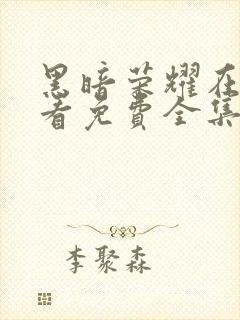 黑暗荣耀在
看免费全集
李聚森